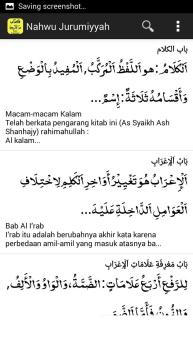 Saving screenshot...
Nahwu Jurumiyyah
باب الكلام
اَلْكَلَامُ : هو اَللَّفْظُ اَلْمُرَكَّبُ, اَلْمُفِيدُ بِالْوَضْعِ
وَأَقْسَامُهُ ثَلَاثَةٌ: إِسْمٌ...
Macam-macam Kalam
Telah berkata pengarang kitab ini (As Syaikh Ash
Shanhajy) rahimahullah :
Al kalam...
بَابُ اَلْإِعْرَابِ
اَلْإِعْرَابُ هُوَ تَغْيِيرُ أَوَاخِرِ اَلْكَلِمِ لِاخْتِلَافِ
اَلْعَوَامِلِ اَلدَّاخِلَةِ عَلَيْهَ...
Bab Al I'rab
I'rab itu adalah berubahnya akhir kata karena
perbedaan amil-amil yang masuk atasnya ba...
بَابُ مَعْرِفَةِ عَلَامَاتِ اَلْإِعْرَابِ
لِلرَّفْعِ أَرْبَعُ عَلَامَاتٍ: اَلضَّمَّةُ, وَالْوَاوُ وَالْأَلِفُ,
وَالنُّونُ فَأَمَّا اَلضَّمَّةُ